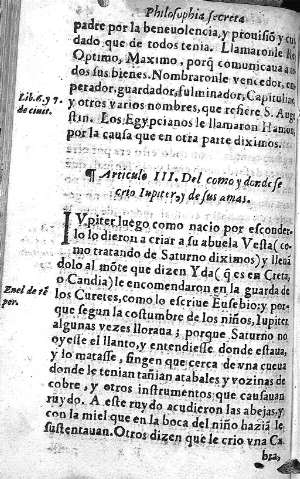 Philosophia secreta
padre por la beneuolencia, y prouisiõ y cui
dado que de todos tenia. Llamaronle
Optimo, Maximo, porq̃ comunicaua a to
dos sus bienes. Nombraronle vencedor, em
perador, guardador, fulminador, Capitulino
Lib. 6. y 7. de ciuit.
y otros varios nombres, que refiere S. Augu
stin. Los Egypcianos le llamaron Hamon
por la causa que en otra parte diximos.
¶ Articulo III. Del como y donde se
crio Iupiter, y de sus amas.
IVpiter luego como nacio por esconder
lo lo dieron a criar a su abuela Vesta (co
mo tratando de Saturno diximos) y lleuã
dolo al mõte que dizen Yda (q̃ es en Creta,
o Candia) le encomendaron en la guarda de
Enel de rẽ
por.
los Curetes, como lo escriue Eusebio: y por
que segun la costumbre de los niños, Iupiter
algunas vezes lloraua; porque Saturno no
oyesse el llanto, y entendiesse donde estaua,
y lo matasse, fingen que cerca de vna cueua
donde le tenian tañian atabales y vozinas de
cobre, y otros instrumentos que causauan
ruydo. A este ruydo acudieron las abejas, y
con la miel que en la boca del niño haziã le
sustentauan. Otros dizen que le crio vna Ca
bra,